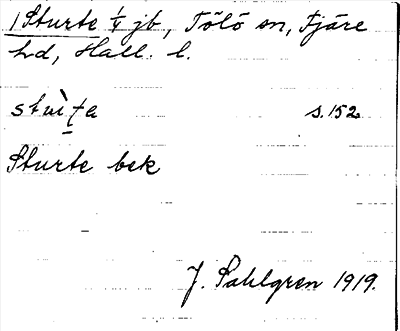 1 Sturte 1/4 jb, Tölö sn, Fjäre
hd, Hall. l.
s. 152
Sturte bek
J. Sahlgren 1919.